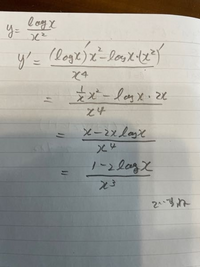 y = log x / x²
y' = (log x)' x² - log x · (x²)' / x⁴
= 1/x x² - log x · 2x / x⁴
= x - 2x log x / x⁴
= 1 - 2 log x / x³